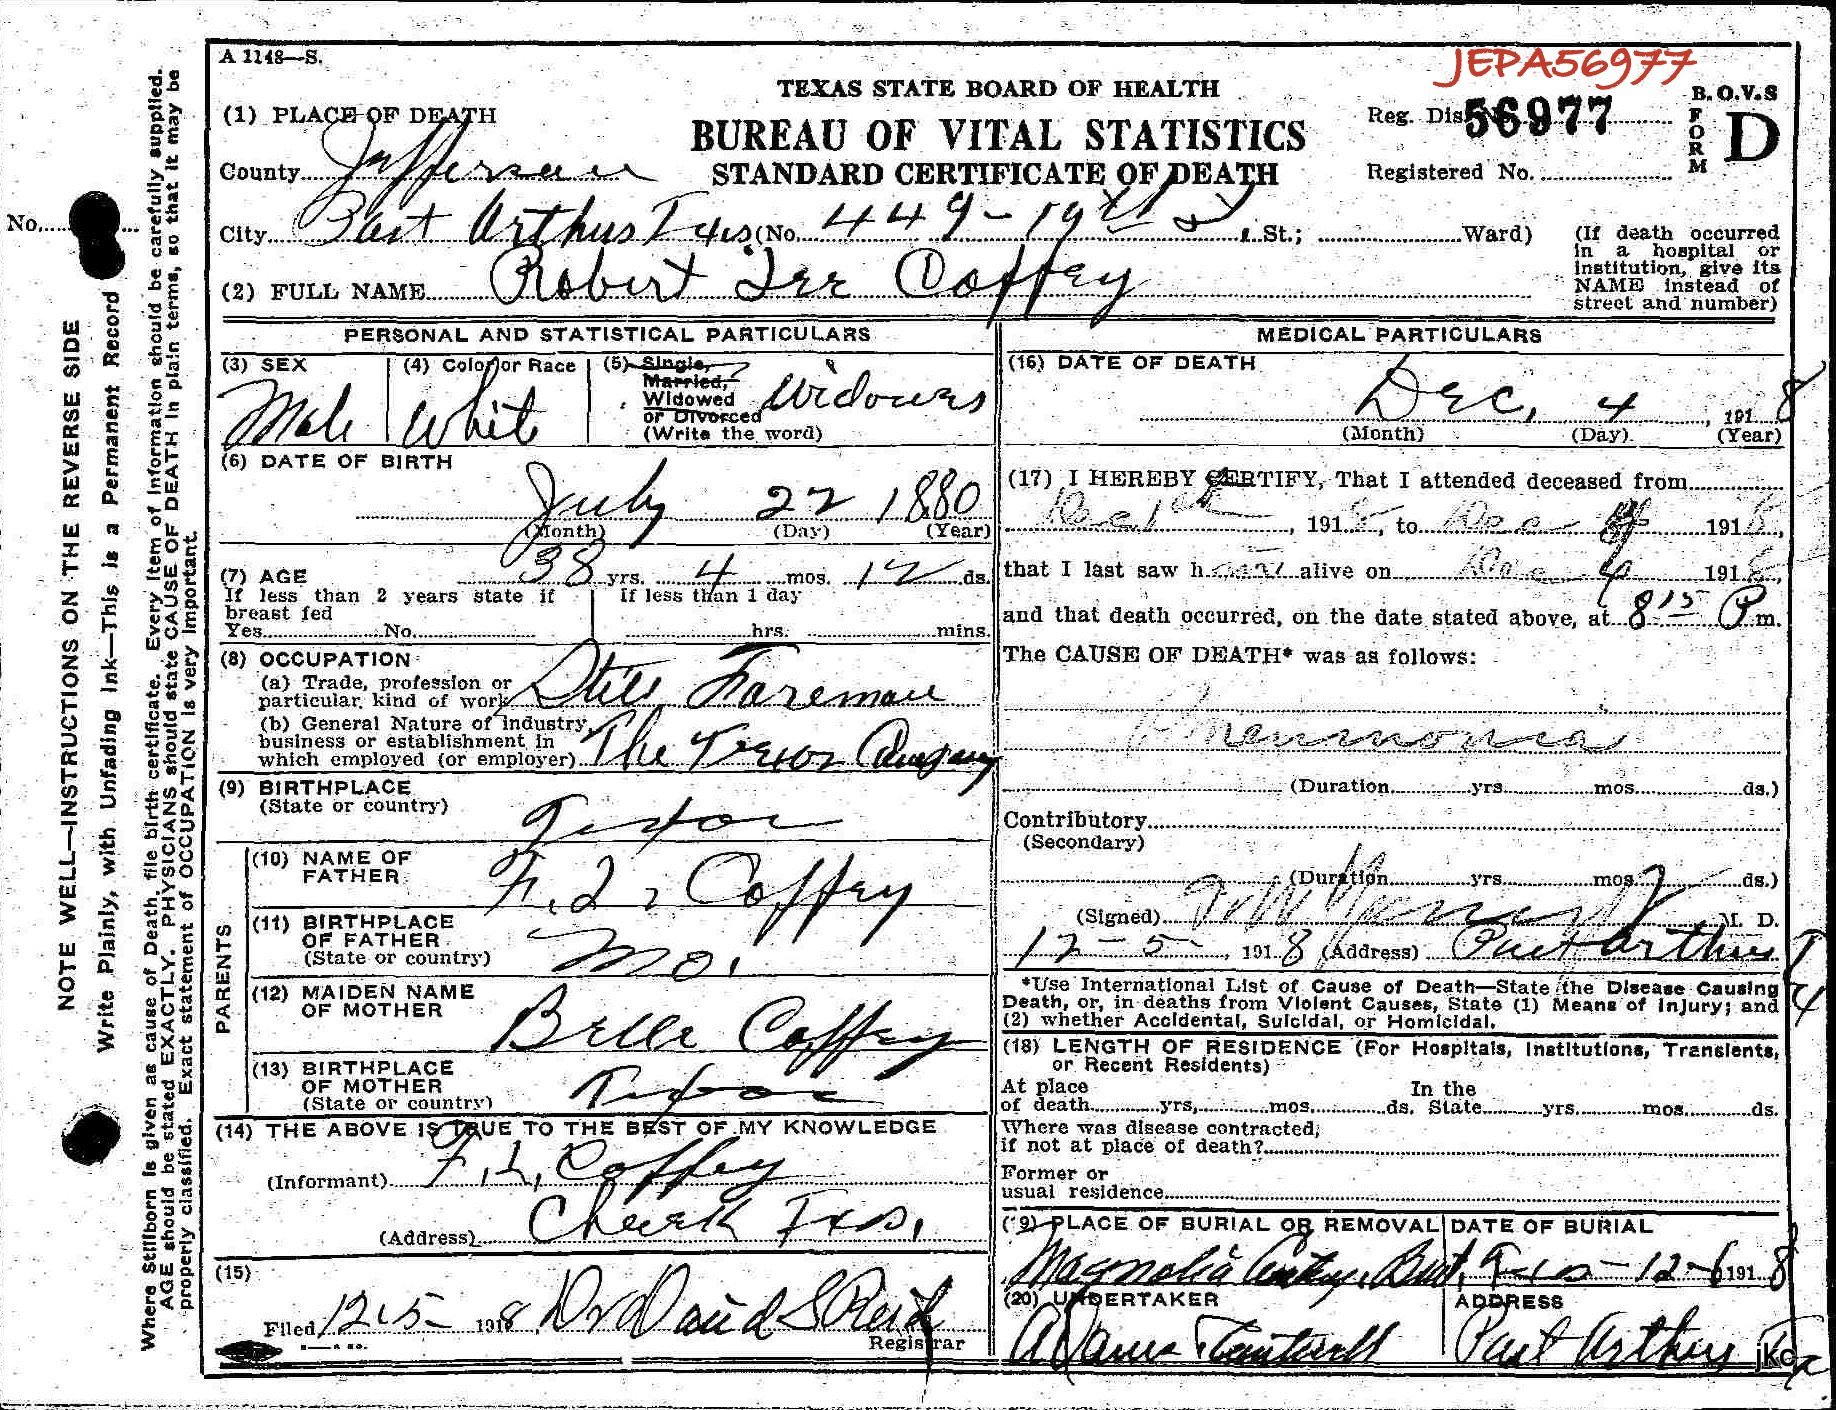 A 1148—S.
JEPA56977
TEXAS STATE BOARD OF HEALTH
BUREAU OF VITAL STATISTICS
STANDARD CERTIFICATE OF DEATH
Reg. Dis. 56977
Registered No.
B.O.V.S
FORM D
No.
(1) PLACE OF DEATH
County Jefferson
City Port Arthur Texas (No. 449-19th St St.; Ward)
(If death occurred in a hospital or institution, give its NAME instead of street and number)
(2) FULL NAME Robert Lee Coffey
PERSONAL AND STATISTICAL PARTICULARS
(3) SEX
Male
(4) Color or Race
White
(5) Single, Married, Widowed or Divorced
(Write the word)
Widower
(6) DATE OF BIRTH
July 22 1880
(Month) (Day) (Year)
(7) AGE 38 yrs. 4 mos. 12 ds.
If less than 2 years state if breast fed
Yes No
If less than 1 day
hrs. mins.
(8) OCCUPATION
(a) Trade, profession or particular kind of work Still Foreman
(b) General Nature of Industry, business or establishment in which employed (or employer) The Texas Company
(9) BIRTHPLACE
(State or country)
Texas
PARENTS
(10) NAME OF FATHER
F. L. Coffey
(11) BIRTHPLACE OF FATHER
(State or country)
Mo.
(12) MAIDEN NAME OF MOTHER
Belle Coffey
(13) BIRTHPLACE OF MOTHER
(State or country)
Texas
(14) THE ABOVE IS TRUE TO THE BEST OF MY KNOWLEDGE
(Informant) F. L. Coffey
(Address) Cheek Texas.
(15)
Filed 12-5- 1918, Dr David S Reid
Registrar
MEDICAL PARTICULARS
(16) DATE OF DEATH
Dec. 4, 1918
(Month) (Day) (Year)
(17) I HEREBY CERTIFY, That I attended deceased from
Dec 1st, 1918, to Dec 4 1918,
that I last saw him alive on Dec 4 1918,
and that death occurred, on the date stated above, at 8 15 P.m.
The CAUSE OF DEATH* was as follows:
Pneumonia
(Duration yrs. mos. ds.)
Contributory
(Secondary)
(Duration yrs. mos. ds.)
(Signed) M. D.
12-5-, 1918 (Address) Port Arthur Tex
*Use International List of Cause of Death—State the Disease Causing
Death, or, in deaths from Violent Causes, State (1) Means of Injury; and
(2) whether Accidental, Suicidal, or Homicidal.
(18) LENGTH OF RESIDENCE (For Hospitals, Institutions, Transients,
or Recent Residents)
At place of death yrs. mos. ds. In the State yrs. mos. ds.
Where was disease contracted,
if not at place of death?
Former or
usual residence
(19) PLACE OF BURIAL OR REMOVAL
Magnolia Cemetery, Bmt, Texas
DATE OF BURIAL
12-6 1918
(20) UNDERTAKER
ADDRESS
Port Arthur Tex
jkc
NOTE WELL—INSTRUCTIONS ON THE REVERSE SIDE
Write Plainly, with Unfading Ink—This is a Permanent Record
Where Stillborn is given as cause of Death, file birth certificate. Every item of Information should be carefully supplied.
AGE should be stated EXACTLY. PHYSICIANS should state CAUSE OF DEATH in plain terms, so that it may be
properly classified. Exact statement of OCCUPATION is very important.